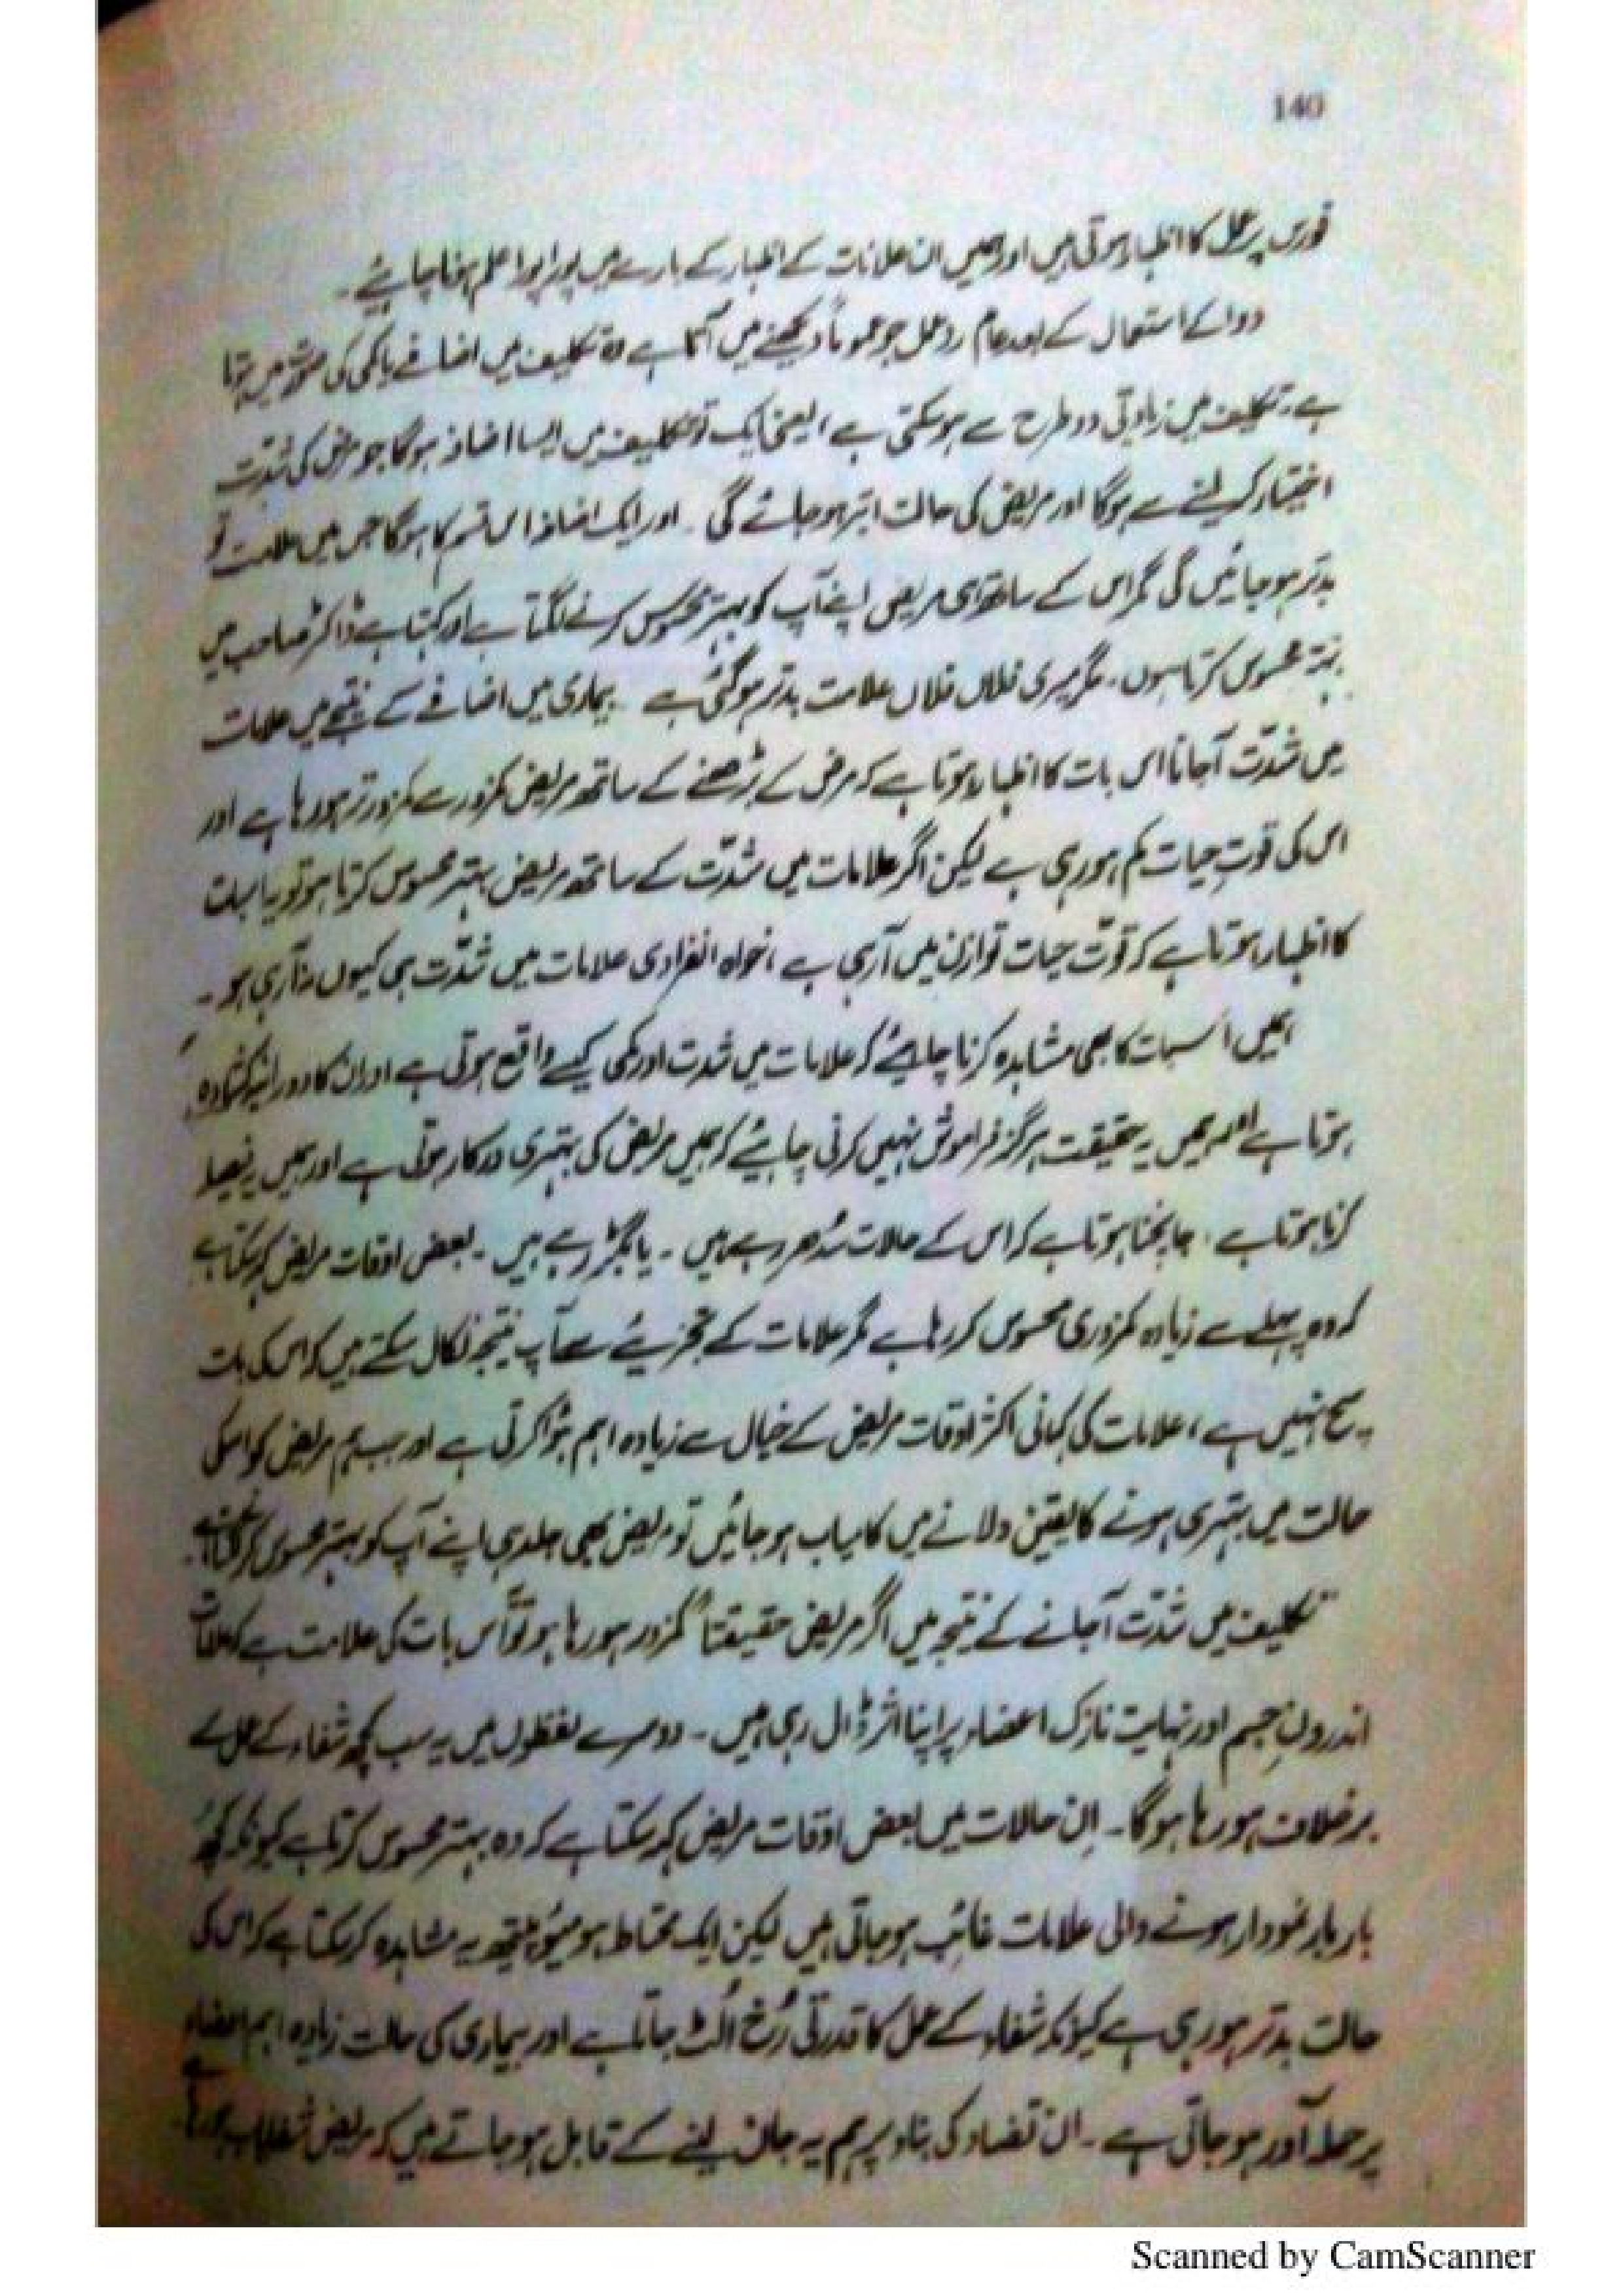 140
فورس پر عمل کا اظہار ہوتی ہیں اور ہمیں ان علامات کے اظہار کے بارے میں پورا پورا علم ہونا چاہئے۔
دوا کے استعمال کے بعد عام ردعمل جو عموماً دیکھنے میں آتا ہے وہ تکلیف میں اضافے یا کمی کی صورت میں ہوتا
ہے۔ تکلیف میں زیادتی دو طرح سے ہو سکتی ہے، یعنی ایک تو تکلیف میں ایسا اضافہ ہوگا جو مرض کی شدّت
اختیار کر لینے سے ہوگا اور مریض کی حالت ابتر ہو جائے گی۔ اور ایک اضافہ اس قسم کا ہوگا جس میں علامت تو
بدتر ہو جائیں گی مگر اس کے ساتھ ہی مریض اپنے آپ کو بہتر محسوس کرنے لگتا ہے اور کہتا ہے ڈاکٹر صاحب میں
بہتر محسوس کرتا ہوں۔ مگر میری فلاں فلاں علامت بدتر ہو گئی ہے۔ بیماری میں اضافے کے نتیجے میں علامات
میں شدّت آجانا اس بات کا اظہار ہوتا ہے کہ مرض کے بڑھنے کے ساتھ مریض کمزور سے کمزور تر ہو رہا ہے اور
اس کی قوتِ حیات کم ہو رہی ہے لیکن اگر علامات میں شدّت کے ساتھ مریض بہتر محسوس کرتا ہو تو یہ اس بات
کا اظہار ہوتا ہے کہ قوّت حیات توازن میں آ رہی ہے، خواہ انفرادی علامات میں شدّت ہی کیوں نہ آ رہی ہو۔
ہمیں اس بات کا بھی مشاہدہ کرنا چاہیئے کہ علامات میں شدت اور کمی کیسے واقع ہوتی ہے اور ان کا دورانیہ کتنا
ہوتا ہے اور ہمیں یہ حقیقت ہرگز فراموش نہیں کرنی چاہیئے کہ ہمیں مریض کی بہتری درکار ہوتی ہے اور ہمیں یہ فیصلہ
کرنا ہوتا ہے، جانچنا ہوتا ہے کہ اس کے حالات سُدھر رہے ہیں۔ یا بگڑ رہے ہیں۔ بعض اوقات مریض کہہ سکتا ہے
کہ وہ پہلے سے زیادہ کمزوری محسوس کر رہا ہے مگر علامات کے تجزیئے سے آپ نتیجہ نکال سکتے ہیں کہ اس کی بات
سچ نہیں ہے، علامات کی کہانی اکثر اوقات مریض کے خیال سے زیادہ اہم ہُوا کرتی ہے اور جب ہم مریض کو اسکی
حالت میں بہتری ہونے کا یقین دلانے میں کامیاب ہو جائیں تو مریض بھی جلد ہی اپنے آپ کو بہتر محسوس کرنے لگتا ہے۔
تکلیف میں شدّت آجانے کے نتیجہ میں اگر مریض حقیقتاً کمزور ہو رہا ہو تو اس بات کی علامت ہے کہ علامات
اندرونِ جسم اور نہایت نازک اعضاء پر اپنا اثر ڈال رہی ہیں۔ دوسرے لفظوں میں یہ سب کچھ شفاء کے عمل کے
برخلاف ہو رہا ہوگا۔ اِن حالات میں بعض اوقات مریض کہہ سکتا ہے کہ وہ بہتر محسوس کرتا ہے کیونکہ کچھ
بار بار نمودار ہونے والی علامات غائب ہو جاتی ہیں لیکن ایک محتاط ہومیوپیتھ یہ مشاہدہ کر سکتا ہے کہ اس کی
حالت بدتر ہو رہی ہے کیونکہ شفاء کے عمل کا قدرتی رُخ اُلٹ جاتا ہے اور بیماری کی حالت زیادہ اہم اعضاء
پر حملہ آور ہو جاتی ہے۔ ان تضاد کی بناء پر ہم یہ جان لینے کے قابل ہو جاتے ہیں کہ مریض شفایاب ہو رہا ہے
Scanned by CamScanner